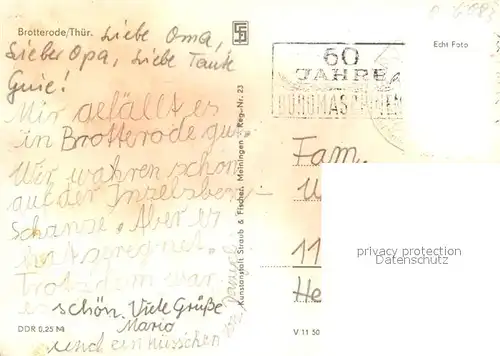 Brotterode/Thür.
Liebe Oma,
Lieber Opa, Liebe Tante
Guie!
Mir gefällt es
in Brotterode gut
Wir wahren schon
auf der Inselsberg
Schanze. Aber es
hat geregnet.
Trotzdem war
es schön. Viele Grüße
Mario
und ein küsschen
DDR 0,25 M
Kunstanstalt Straub & Fischer, Meiningen Reg-Nr. 23
60
JAHRE
BÜROMASCHINEN
Echt Foto
Fam.
11
He
V 11 50
privacy protection
Datenschutz